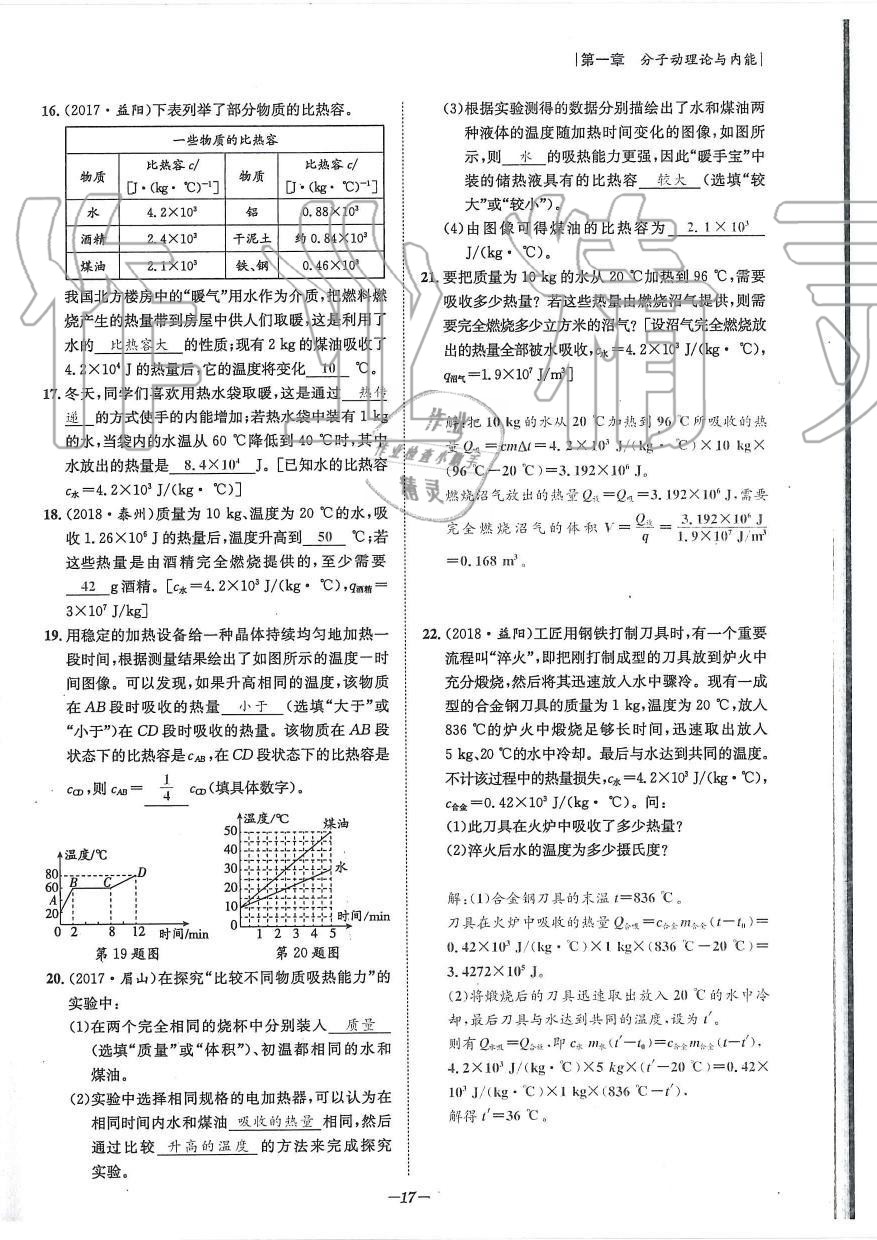 第一章 分子动理论与内能
16.(2017·益阳)下表列举了部分物质的比热容。
一些物质的比热容
物质 比热容 c/[J·(kg·℃)⁻¹] 物质 比热容 c/[J·(kg·℃)⁻¹]
水 4.2×10³ 铝 0.88×10³
酒精 2.4×10³ 干泥土 约 0.84×10³
煤油 2.1×10³ 铁、钢 0.46×10³
我国北方楼房中的“暖气”用水作为介质,把燃料燃
烧产生的热量带到房屋中供人们取暖,这是利用了
水的 比热容大 的性质;现有 2 kg 的煤油吸收了
4.2×10⁴ J 的热量后,它的温度将变化 10 ℃。
17.冬天,同学们喜欢用热水袋取暖,这是通过 热传
递 的方式使手的内能增加;若热水袋中装有 1 kg
的水,当袋内的水温从 60 ℃降低到 40 ℃时,其中
水放出的热量是 8.4×10⁴ J。[已知水的比热容
c水=4.2×10³ J/(kg·℃)]
18.(2018·泰州)质量为 10 kg、温度为 20 ℃的水,吸
收 1.26×10⁶ J 的热量后,温度升高到 50 ℃;若
这些热量是由酒精完全燃烧提供的,至少需要
42 g 酒精。[c水=4.2×10³ J/(kg·℃),q酒精=
3×10⁷ J/kg]
19.用稳定的加热设备给一种晶体持续均匀地加热一
段时间,根据测量结果绘出了如图所示的温度一时
间图像。可以发现,如果升高相同的温度,该物质
在 AB 段时吸收的热量 小于 (选填“大于”或
“小于”)在 CD 段时吸收的热量。该物质在 AB 段
状态下的比热容是 cAB,在 CD 段状态下的比热容是
cCD,则 cAB= 1/4 cCD(填具体数字)。
温度/℃
80
60
A
20
B C D
0 2 8 12 时间/min
第 19 题图
温度/℃
50
40
30
20
10
0
煤油
水
1 2 3 4 5 时间/min
第 20 题图
20.(2017·眉山)在探究“比较不同物质吸热能力”的
实验中:
(1)在两个完全相同的烧杯中分别装入 质量
(选填“质量”或“体积”)、初温都相同的水和
煤油。
(2)实验中选择相同规格的电加热器,可以认为在
相同时间内水和煤油 吸收的热量 相同,然后
通过比较 升高的温度 的方法来完成探究
实验。
(3)根据实验测得的数据分别描绘出了水和煤油两
种液体的温度随加热时间变化的图像,如图所
示,则 水 的吸热能力更强,因此“暖手宝”中
装的储热液具有的比热容 较大 (选填“较
大”或“较小”)。
(4)由图像可得煤油的比热容为 2.1×10³
J/(kg·℃)。
21.要把质量为 10 kg 的水从 20 ℃加热到 96 ℃,需要
吸收多少热量？若这些热量由燃烧沼气提供,则需
要完全燃烧多少立方米的沼气？[设沼气完全燃烧放
出的热量全部被水吸收,c水=4.2×10³ J/(kg·℃),
q沼气=1.9×10⁷ J/m³]
解:把 10 kg 的水从 20 ℃加热到 96 ℃所吸收的热
量 Q吸=cmΔt=4.2×10³ J/(kg·℃)×10 kg×
(96 ℃-20 ℃)=3.192×10⁶ J。
燃烧沼气放出的热量 Q放=Q吸=3.192×10⁶ J,需要
完全燃烧沼气的体积 V=Q放/q=3.192×10⁶ J/1.9×10⁷ J/m³
=0.168 m³。
22.(2018·益阳)工匠用钢铁打制刀具时,有一个重要
流程叫“淬火”,即把刚打制成型的刀具放到炉火中
充分煅烧,然后将其迅速放入水中骤冷。现有一成
型的合金钢刀具的质量为 1 kg,温度为 20 ℃,放入
836 ℃的炉火中煅烧足够长时间,迅速取出放入
5 kg、20 ℃的水中冷却。最后与水达到共同的温度。
不计该过程中的热量损失,c水=4.2×10³ J/(kg·℃),
c合金=0.42×10³ J/(kg·℃)。问:
(1)此刀具在火炉中吸收了多少热量？
(2)淬火后水的温度为多少摄氏度？
解:(1)合金钢刀具的末温 t=836 ℃。
刀具在火炉中吸收的热量 Q合吸=c合金m合金(t-t₀)=
0.42×10³ J/(kg·℃)×1 kg×(836 ℃-20 ℃)=
3.4272×10⁵ J。
(2)将煅烧后的刀具迅速取出放入 20 ℃的水中冷
却,最后刀具与水达到共同的温度,设为 t′。
则有 Q水吸=Q合放,即 c水 m水(t′-t₀)=c合金m合金(t-t′),
4.2×10³ J/(kg·℃)×5 kg×(t′-20 ℃)=0.42×
10³ J/(kg·℃)×1 kg×(836 ℃-t′),
解得 t′=36 ℃。
—17—
作业精灵
作业
作业检查小助手
精灵